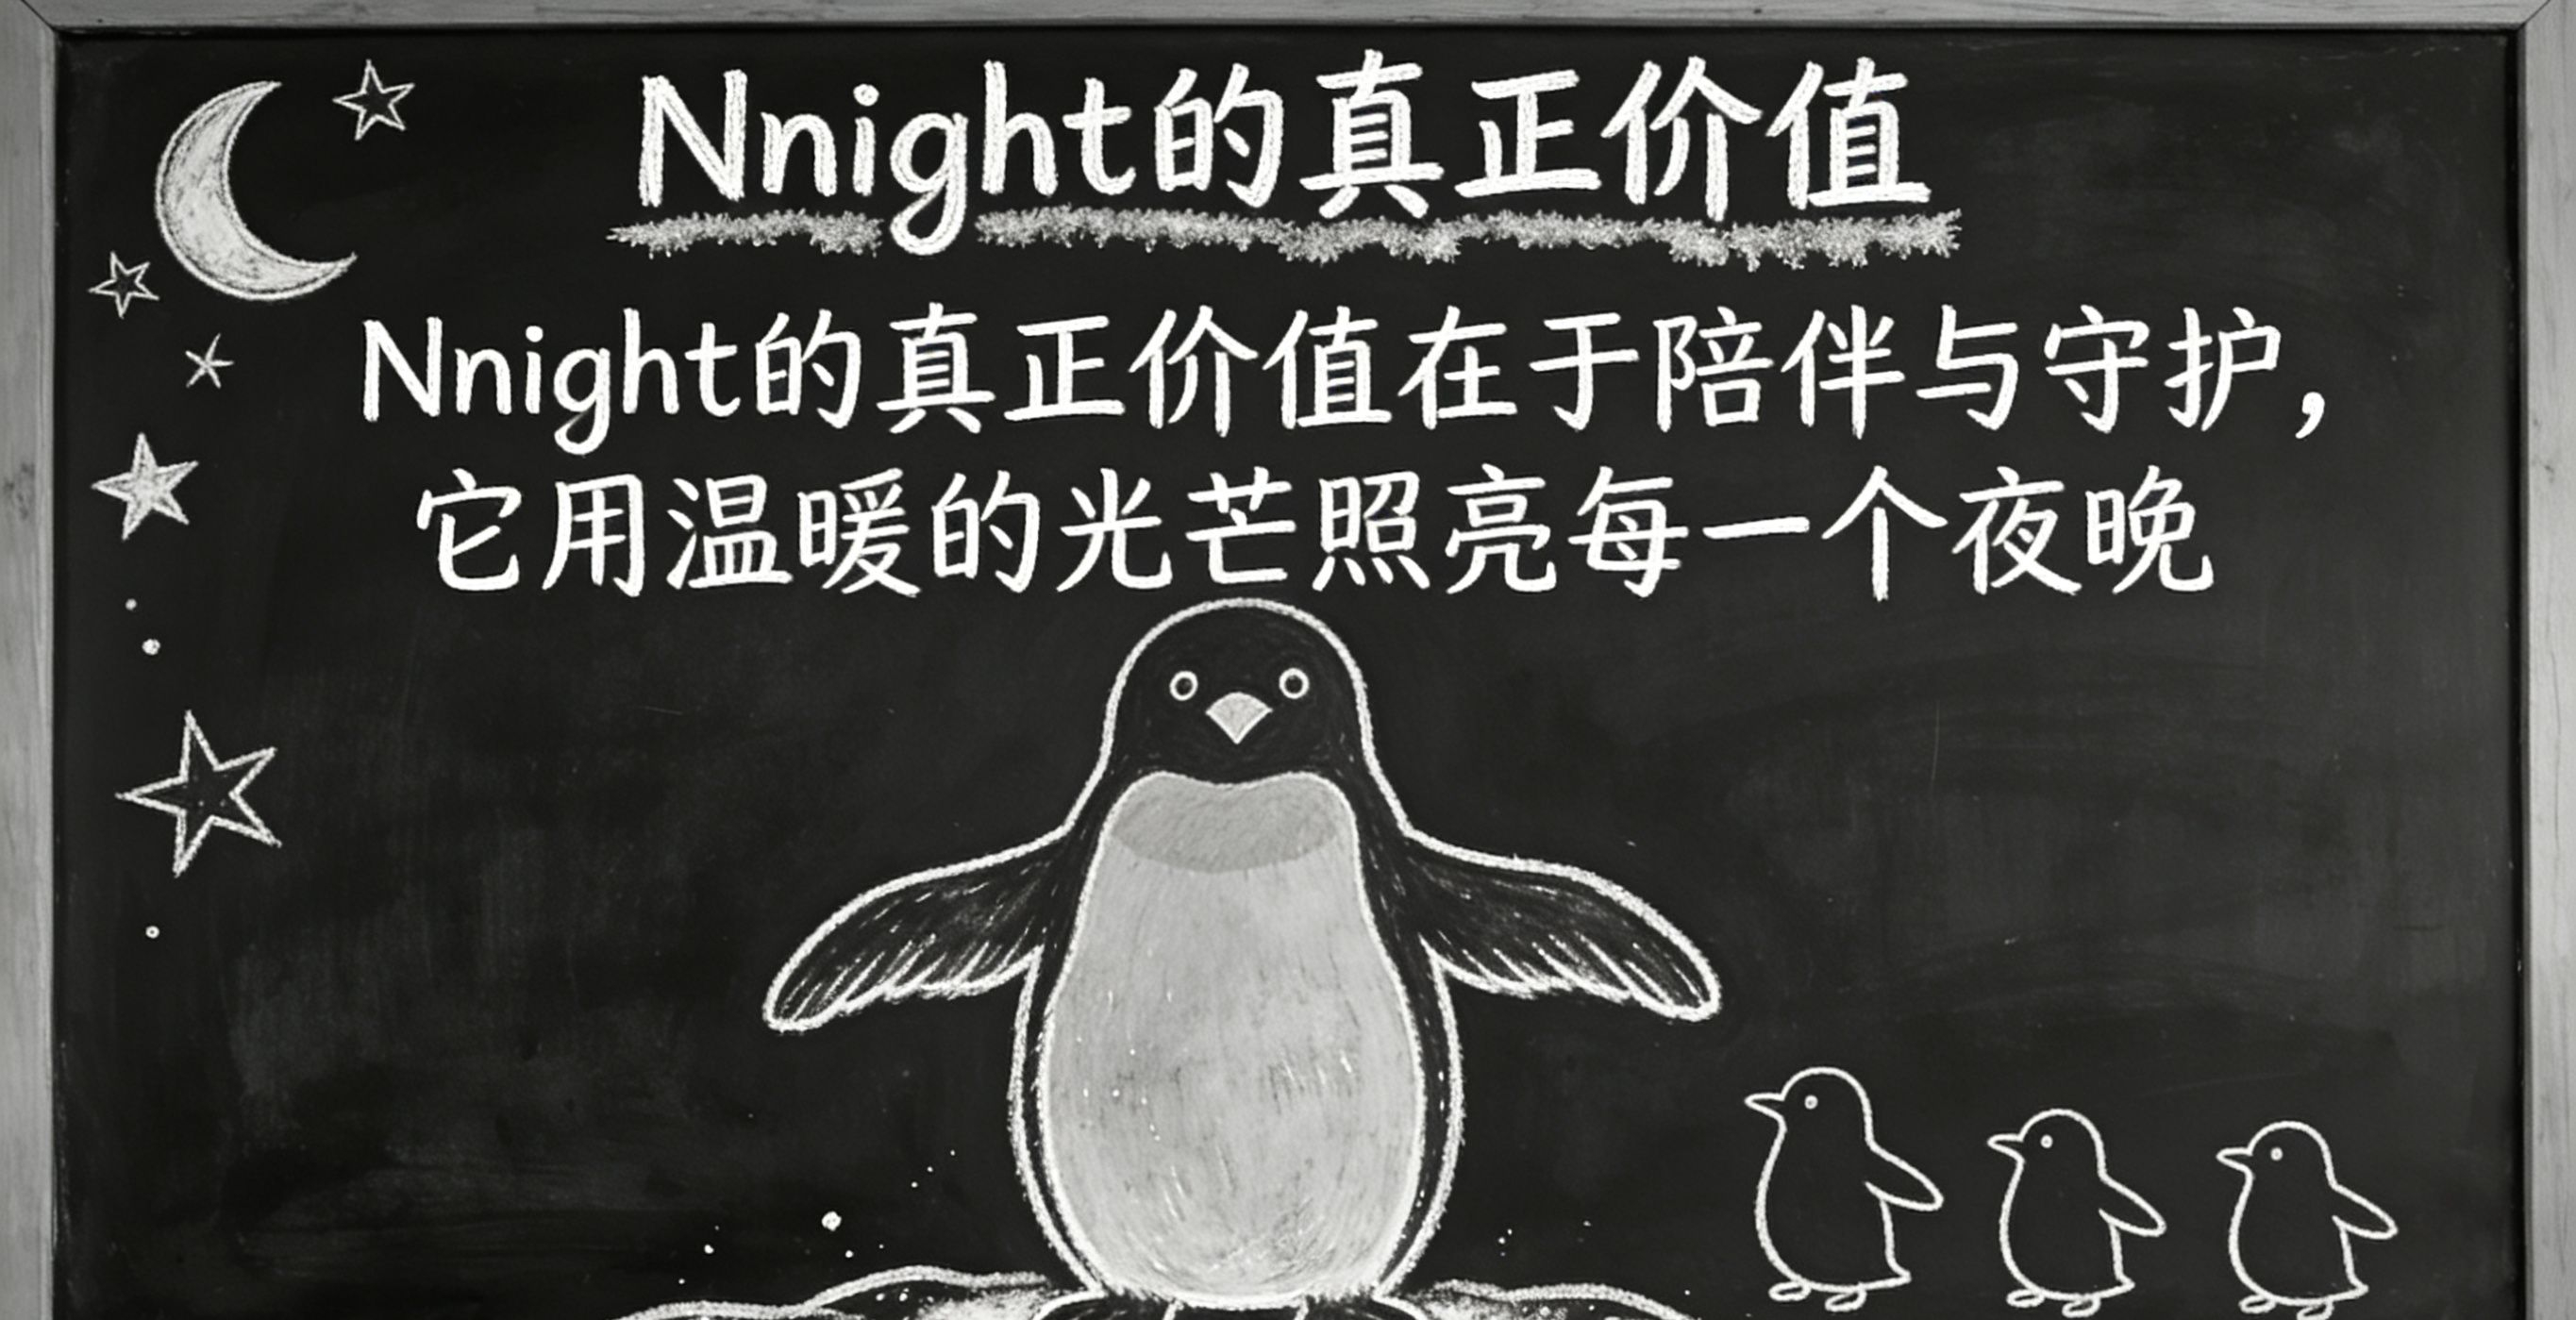 Nnight的真正价值
Nnight的真正价值在于陪伴与守护，
它用温暖的光芒照亮每一个夜晚